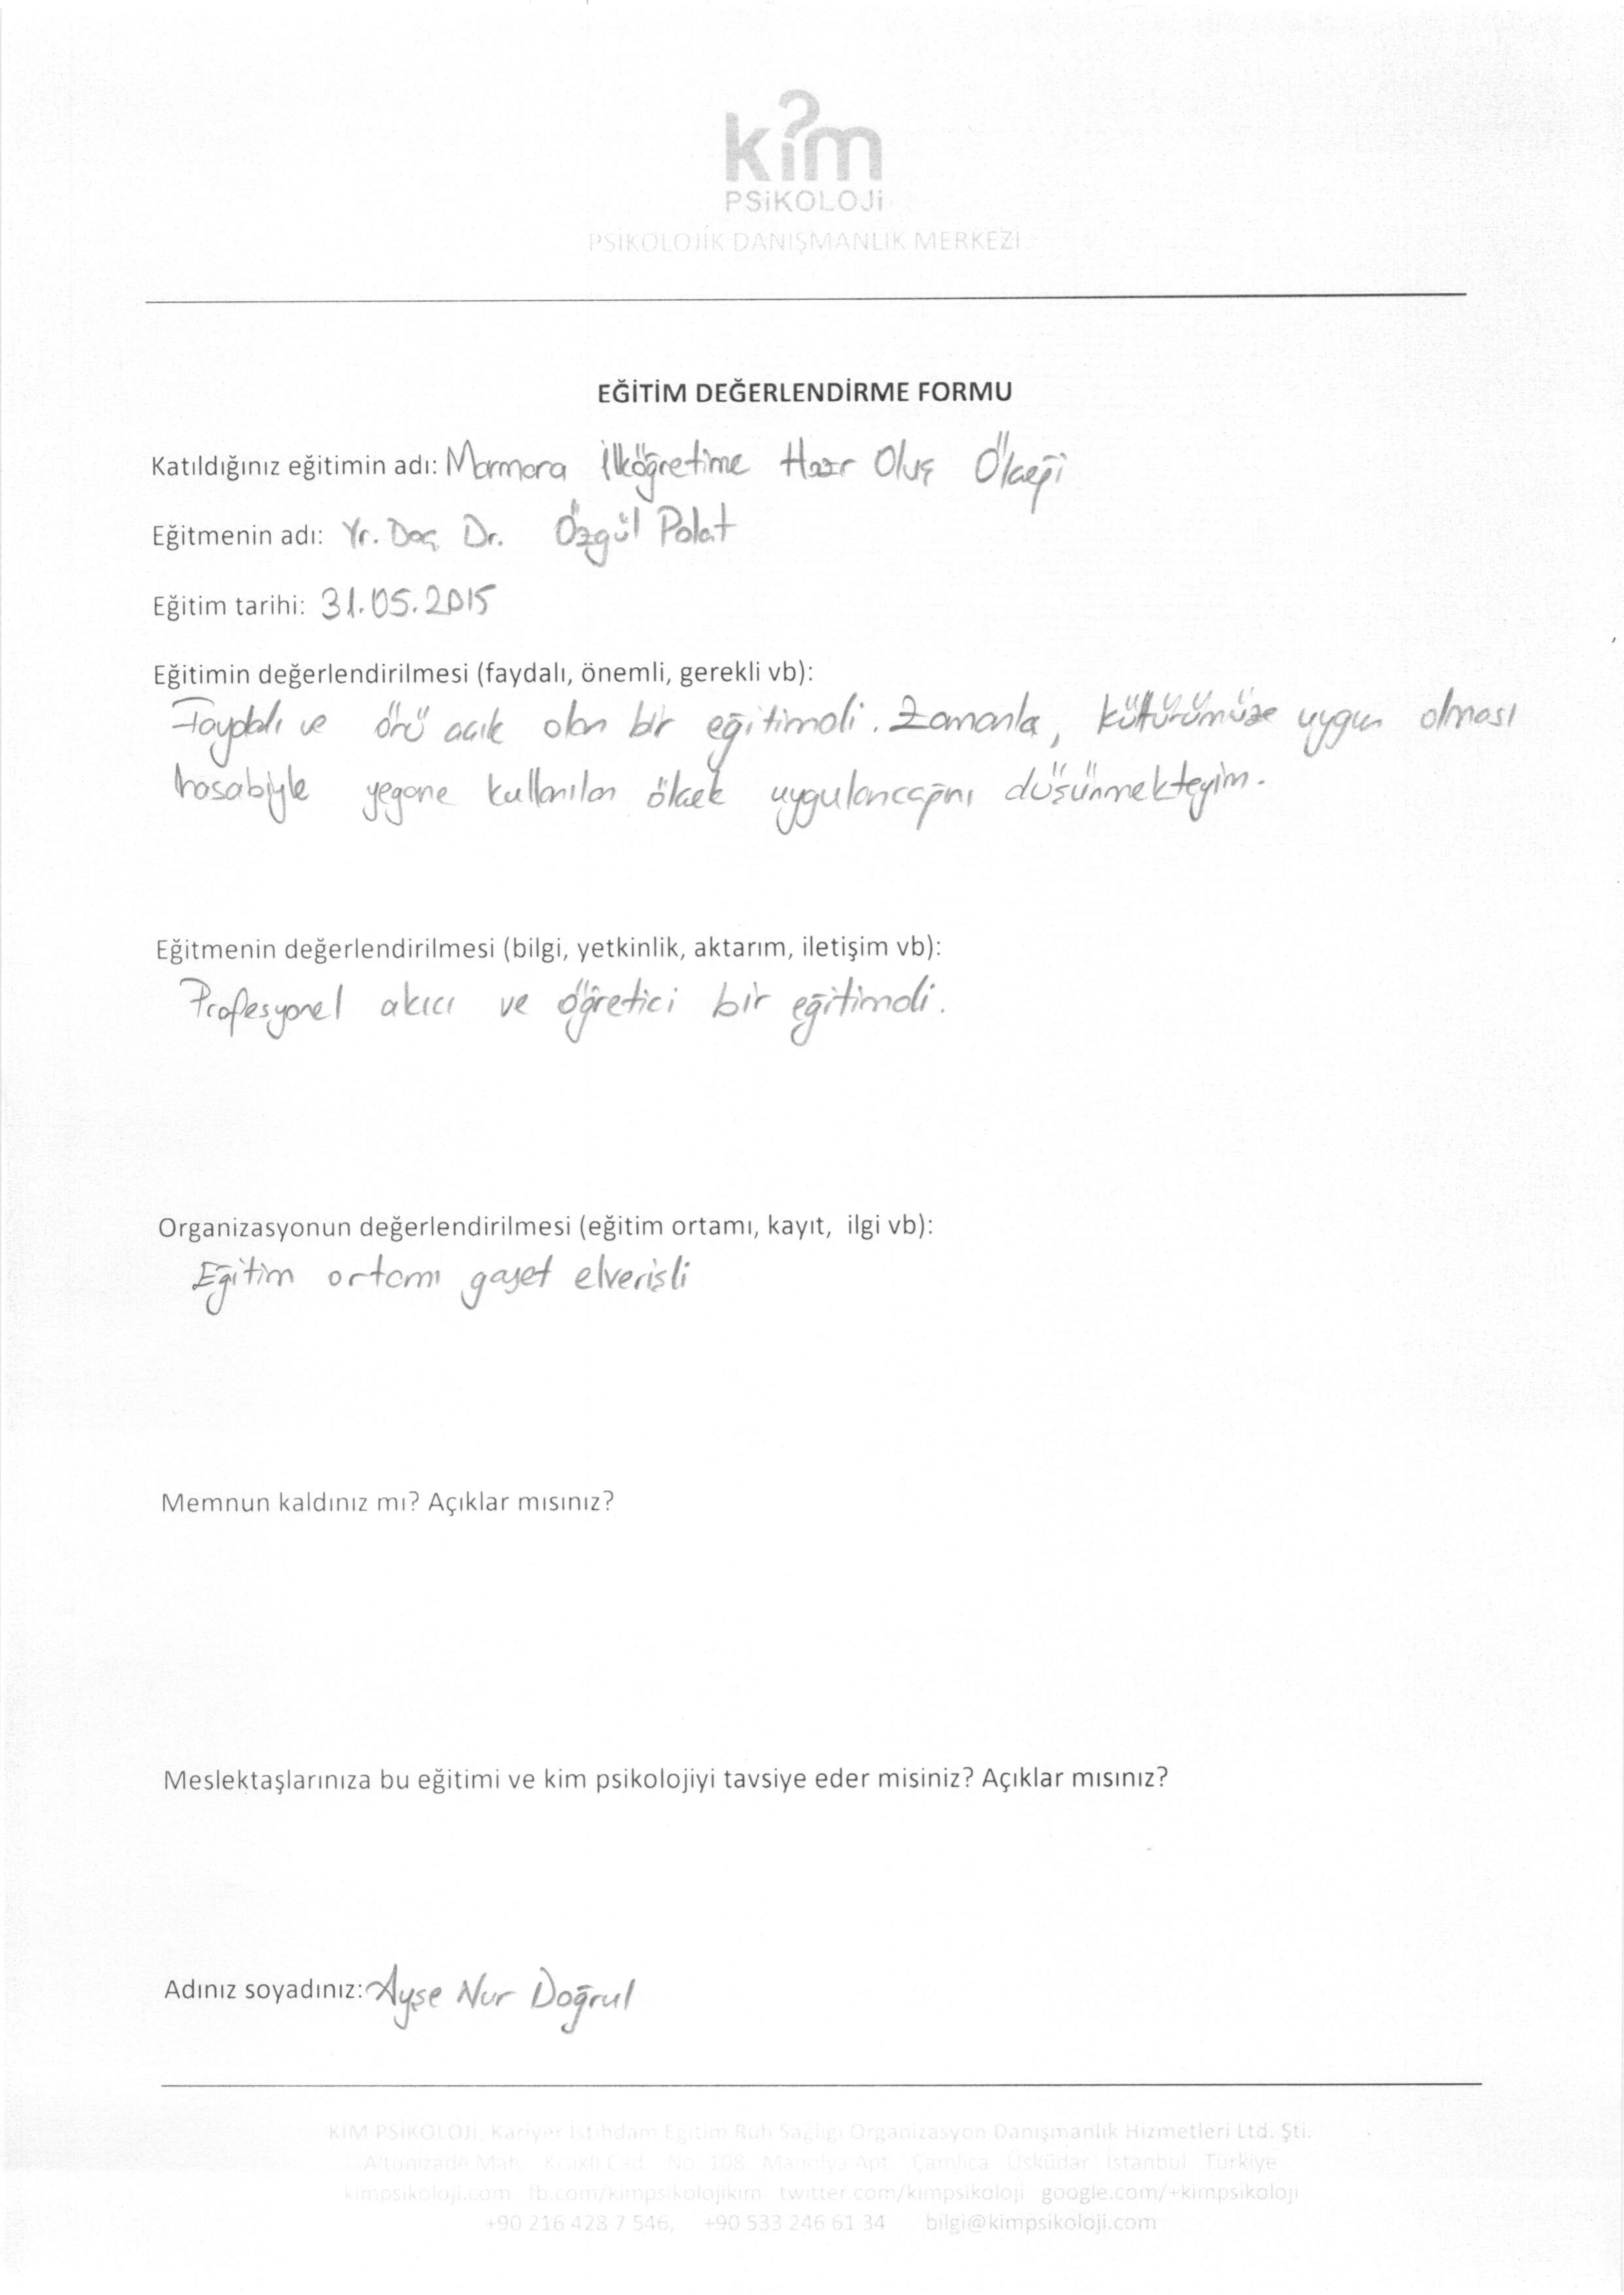 kim
PSiKOLOJi
PSİKOLOJİK DANIŞMANLIK MERKEZİ
EĞİTİM DEĞERLENDİRME FORMU
Katıldığınız eğitimin adı: Marmara İlköğretime Hazır Oluş Ölçeği
Eğitmenin adı: Yr. Doç Dr. Özgül Polat
Eğitim tarihi: 31.05.2015
Eğitimin değerlendirilmesi (faydalı, önemli, gerekli vb):
Faydalı ve önü açık olan bir eğitimdi. Zamanla, kültürümüze uygun olması
hasabiyle yegane kullanılan ölçek uygulanacağını düşünmekteyim.
Eğitmenin değerlendirilmesi (bilgi, yetkinlik, aktarım, iletişim vb):
Profesyonel akıcı ve öğretici bir eğitimdi.
Organizasyonun değerlendirilmesi (eğitim ortamı, kayıt, ilgi vb):
Eğitim ortamı gayet elverişli
Memnun kaldınız mı? Açıklar mısınız?
Meslektaşlarınıza bu eğitimi ve kim psikolojiyi tavsiye eder misiniz? Açıklar mısınız?
Adınız soyadınız: Ayşe Nur Doğrul
KİM PSİKOLOJİ, Kariyer İstihdam Eğitim Ruh Sağlığı Organizasyon Danışmanlık Hizmetleri Ltd. Şti.
Altunizade Mah. Kısıklı Cad. No. 108 Manolya Apt. Çamlıca Üsküdar İstanbul Türkiye
kimpsikoloji.com fb.com/kimpsikolojikim twitter.com/kimpsikoloji google.com/+kimpsikoloji
+90 216 428 7 546, +90 533 246 61 34 bilgi@kimpsikoloji.com